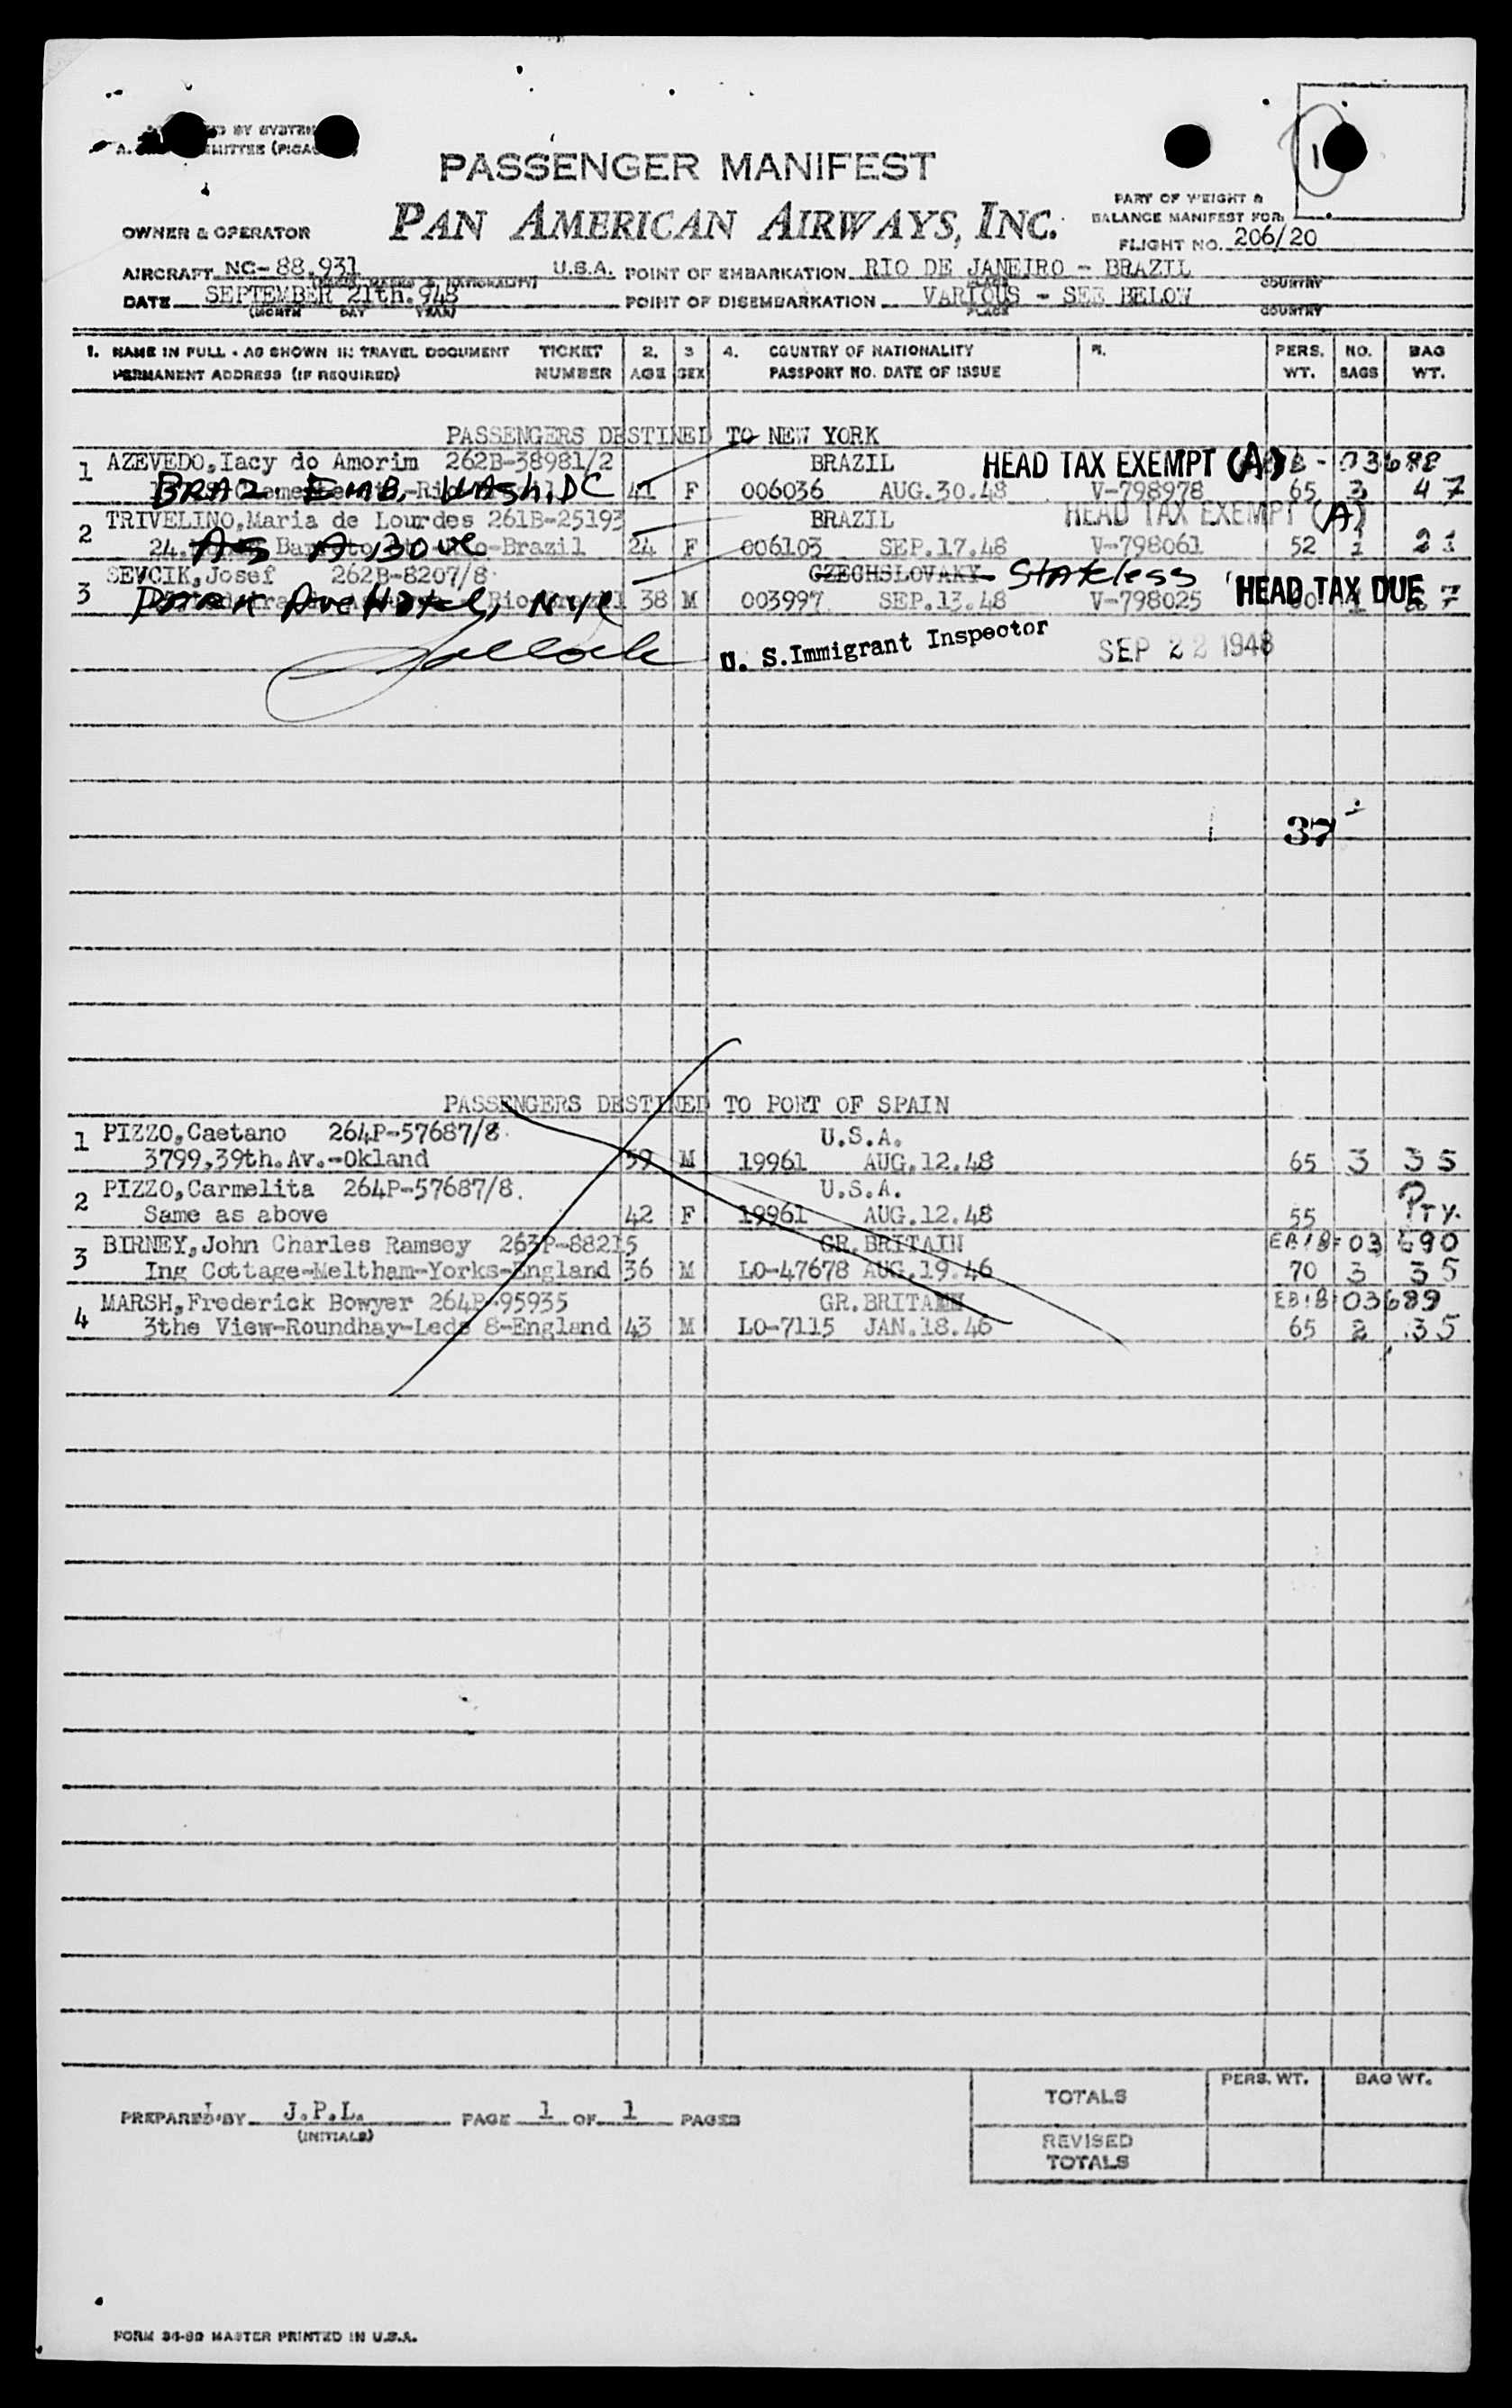 1
PASSENGER MANIFEST
PART OF WEIGHT &
BALANCE MANIFEST FOR
PAN AMERICAN AIRWAYS, INC.
OWNER & OPERATOR
FLIGHT NO. 206/20
AIRCRAFT NC-88.931 U.S.A. POINT OF EMBARKATION RIO DE JANEIRO - BRAZIL
DATE SEPTEMBER 21th.948 POINT OF DISEMBARKATION VARIOUS - SEE BELOW
(MONTH DAY YEAR) PLACE COUNTRY
1. NAME IN FULL - AS SHOWN IN TRAVEL DOCUMENT TICKET 2. 3 4. COUNTRY OF NATIONALITY PERS. NO. BAG
PERMANENT ADDRESS (IF REQUIRED) NUMBER AGE SEX PASSPORT NO. DATE OF ISSUE WT. BAGS WT.
PASSENGERS DESTINED TO NEW YORK
1 AZEVEDO,Iacy do Amorim 262B-38981/2 BRAZIL HEAD TAX EXEMPT (A) B-03688
BRAZ. EMB. WASh, DC 41 F 006036 AUG.30.48 V-798978 65 3 47
2 TRIVELINO,Maria de Lourdes 261B-25193 BRAZIL HEAD TAX EXEMPT (A)
24. As Above -Brazil 24 F 006103 SEP.17.48 V-798061 52 1 21
3 SEVCIK,Josef 262B-8207/8 CZECHSLOVAKY Stateless HEAD TAX DUE
Park Ave Hotel, NYC 38 M 003997 SEP.13.48 V-798025 1 27
U. S. Immigrant Inspector SEP 22 1948
37
PASSENGERS DESTINED TO PORT OF SPAIN
1 PIZZO,Caetano 264P-57687/8. U.S.A.
3799,39th.Av.-Okland 59 M 19961 AUG.12.48 65 3 35
2 PIZZO,Carmelita 264P-57687/8. U.S.A.
Same as above 42 F 19961 AUG.12.48 55 Pty.
3 BIRNEY,John Charles Ramsey 263P-88215 GR.BRITAIN EB/B-03690
Ing Cottage-Meltham-Yorks-England 36 M LO-47678 AUG.19.46 70 3 35
4 MARSH,Frederick Bowyer 264P-95935 GR.BRITAIN EB/B 03689
3the View-Roundhay-Leds 8-England 43 M LO-7115 JAN.18.46 65 2 35
PERS. WT. BAG WT.
TOTALS
PREPARED BY J.P.L. PAGE 1 OF 1 PAGES
(INITIALS)
REVISED
TOTALS
FORM 36-80 MASTER PRINTED IN U.S.A.